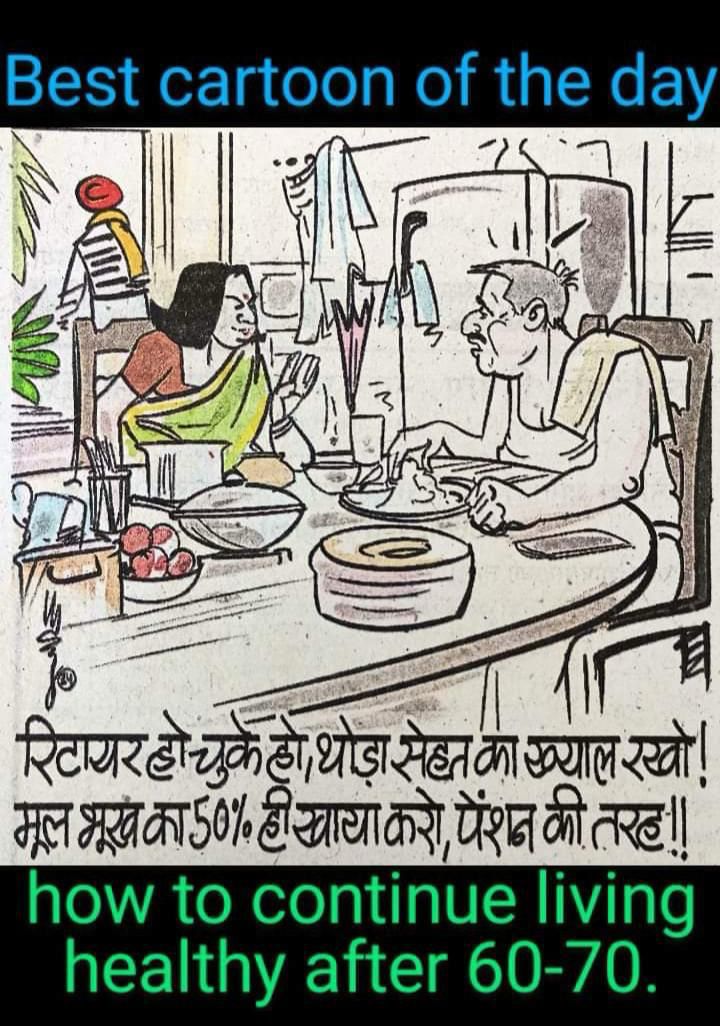 Best cartoon of the day
रिटायर हो चुके हो, थोड़ा सेहत का ख्याल रखो!
मूल भूख का 50% ही खाया करो, पेंशन की तरह!!
how to continue living
healthy after 60-70.